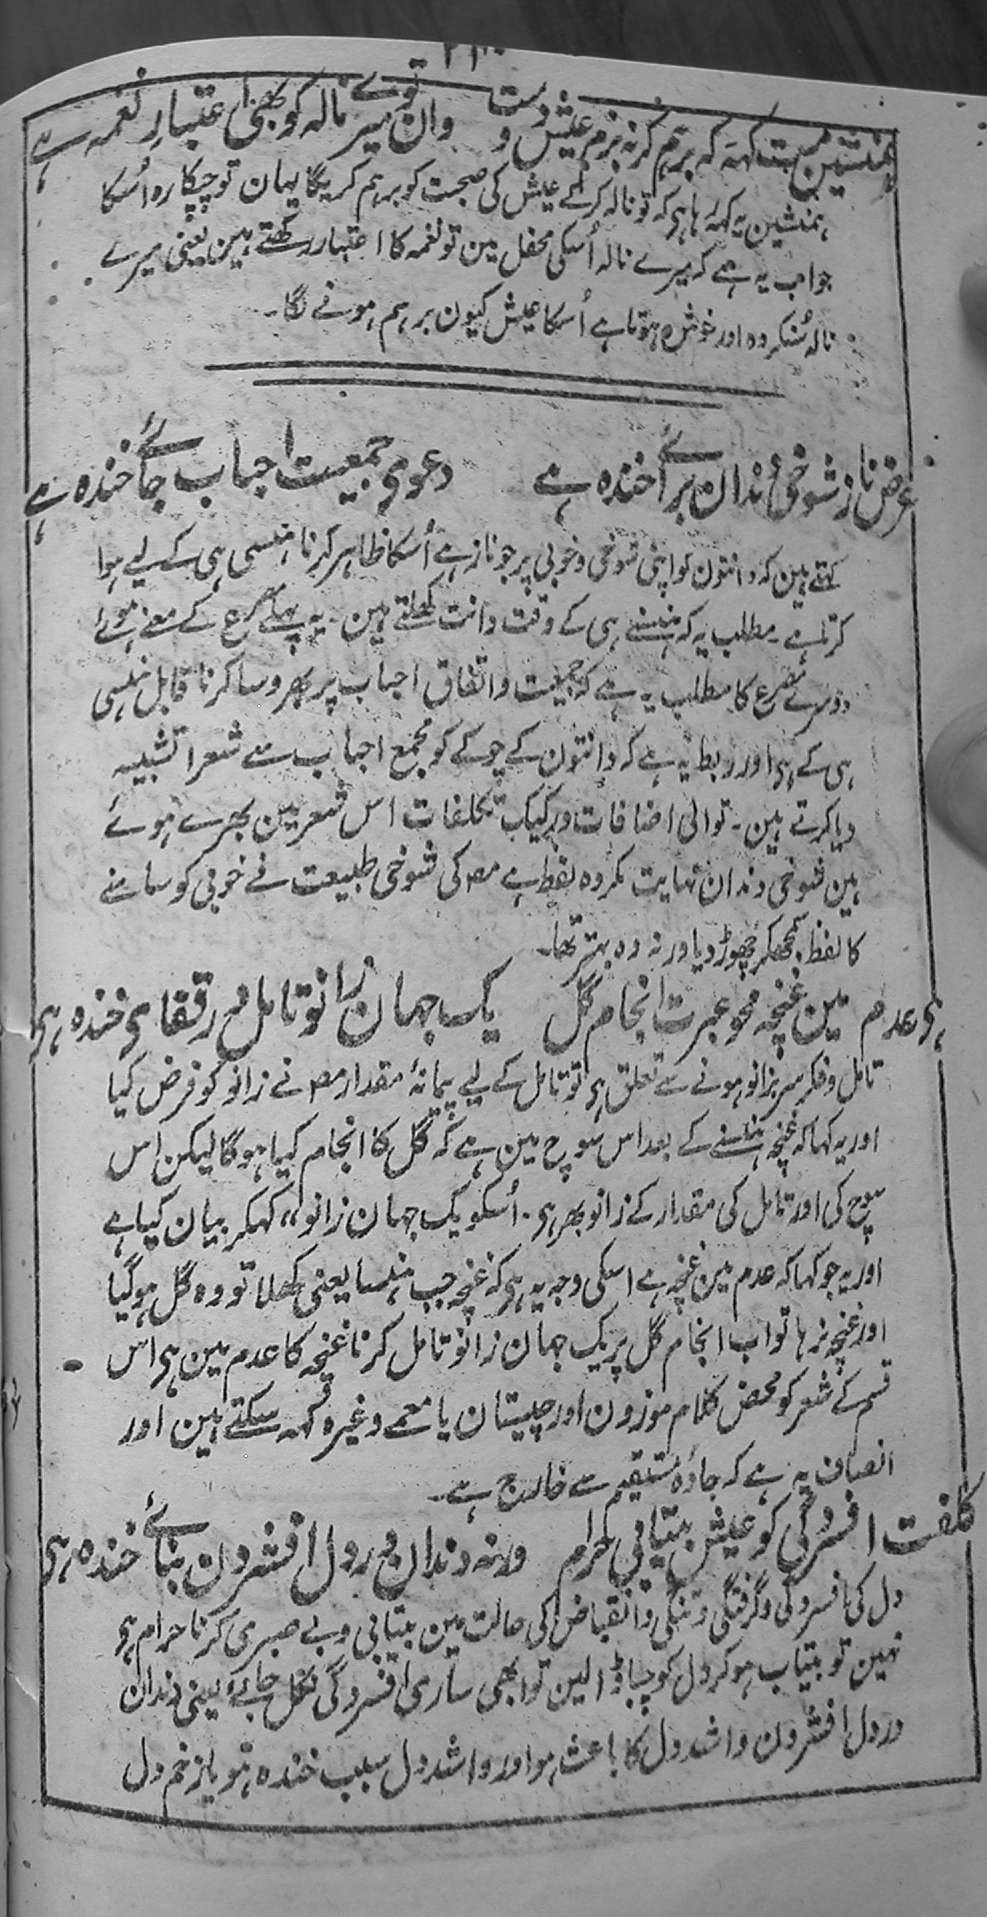 ہمنشین مت کہہ کہ برہم کر نہ بزم عیش دوست وان تو میرے نالہ کو بھی اعتبار نغمہ ہے
ہمنشین یہ کہہ رہا ہی کہ تو نالہ کرکے عیش کی صحبت کو برہم کریگا یہان تو چپکا رہ اُسکا
جواب یہ ہے کہ میرے نالہ اُسکی محفل مین تو نغمہ کا اعتبار رکھتے ہین یعنی میرے
نالہ سُنکر وہ اور خوش ہوتا ہے اُسکا عیش کیون برہم ہونے لگا۔
عرض ناز شوخیِ دندان برائے خندہ ہے دعویِ جمعیت احباب جائے خندہ ہے
کہتے ہین کہ دانتون کو اپنی شوخی و خوبی پر جو ناز ہے اُسکا ظاہر کرنا ہنسی ہی کے لیے ہوا
کرتا ہے۔ مطلب یہ کہ ہنسنے ہی کے وقت دانت کھلتے ہین۔ یہ پہلے مصرع کے معنے ہوئے
دوسرے مصرع کا مطلب یہ ہے کہ جمعیت و اتفاق احباب پر بھروسا کرنا قابل ہنسی
ہی کے ہی اور ربط یہ ہے کہ دانتون کے چوکے کو مجمع احباب سے شعرا تشبیہ
دیا کرتے ہین۔ توالی اضافات و رکیک تکلفات اس شعر مین بھرے ہوئے
ہین شوخی دندان نہایت مکروہ لفظ ہے مصـ کی شوخی طبیعت نے خوبی کو سامنے
کا لفظ سمجھکر چھوڑ دیا ورنہ وہ بہتر تھا۔
ہی عدم مین غنچہ محو عبرت انجام گل یک جہان زانو تامل در قفای خندہ ہی
تامل و فکر سر بزانو ہونے سے تعلق ہی تو تامل کے لیے پیمانۂ مقدار مصـ نے زانو کو فرض کیا
اور یہ کہا کہ غنچہ ہنسنے کے بعد اس سوچ مین ہے کہ گل کا انجام کیا ہوگا لیکن اس
سوچ کی اور تامل کی مقدار کے زانو بھر ہی۔ اُسکو یک جہان زانو،، کہکر بیان کیا ہے
اور یہ جو کہا کہ عدم مین غنچہ ہے اسکی وجہ یہ ہی کہ غنچہ جب ہنسا یعنی کھلا تو وہ گل ہوگیا
اور غنچہ نرہا تو اب انجام گل پر یک جہان زانو تامل کرنا غنچہ کا عدم مین ہی اس
قسم کے شعر کو محض کلام موزون اور چیستان یا معمے وغیرہ کہہ سکتے ہین اور
انصاف یہ ہے کہ جادۂ مستقیم سے خارج ہے۔
کلفت افسردگی کو عیش بیتابی حرام ورنہ دندان در دل افشردن بنائے خندہ ہی
دل کی افسردگی و گرفتگی و تنگی و انقباض کی حالت مین بیتابی و بے صبری کرنا حرام ہی
نہین تو بیتاب ہوکر دل کو چبا ڈالین تو ابھی ساری افسردگی نکل جائے یعنی دندان
در دل افشردن واشد دل کا باعث ہو اور واشد دل سبب خندہ ہو یا زخم دل